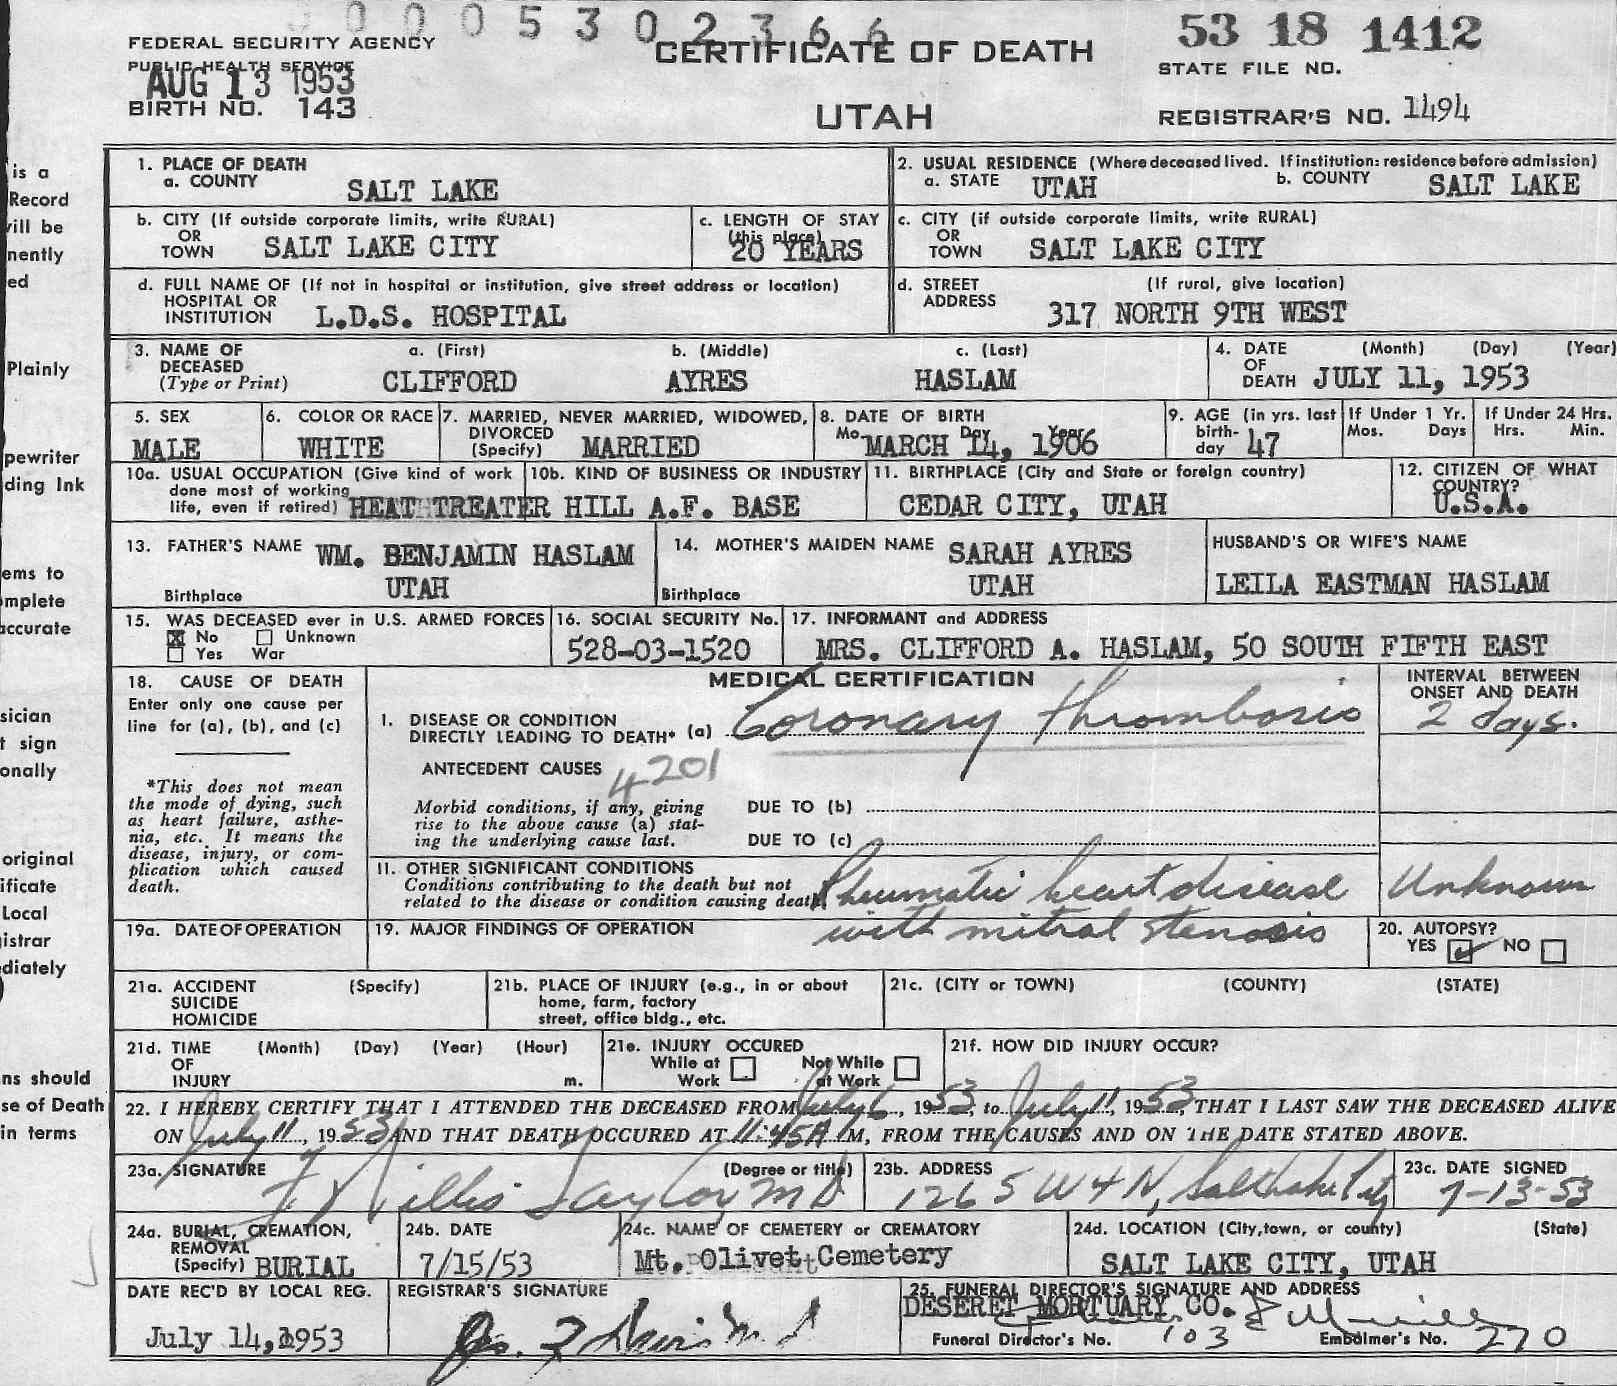 0 0 0 5 3 0 2 3 6 6
53 18 1412
FEDERAL SECURITY AGENCY
PUBLIC HEALTH SERVICE
AUG 13 1953
BIRTH NO. 143
CERTIFICATE OF DEATH
UTAH
STATE FILE NO.
REGISTRAR'S NO. 1494
is a
Record
will be
nently
ed
Plainly
pewriter
ding Ink
ems to
omplete
accurate
sician
t sign
onally
original
ificate
Local
istrar
diately
)
ns should
se of Death
in terms
1. PLACE OF DEATH
a. COUNTY SALT LAKE
2. USUAL RESIDENCE (Where deceased lived. If institution: residence before admission)
a. STATE UTAH b. COUNTY SALT LAKE
b. CITY (If outside corporate limits, write RURAL)
OR
TOWN SALT LAKE CITY
c. LENGTH OF STAY
(this place)
20 YEARS
c. CITY (if outside corporate limits, write RURAL)
OR
TOWN SALT LAKE CITY
d. FULL NAME OF (If not in hospital or institution, give street address or location)
HOSPITAL OR
INSTITUTION L.D.S. HOSPITAL
d. STREET (If rural, give location)
ADDRESS 317 NORTH 9TH WEST
3. NAME OF a. (First) b. (Middle) c. (Last)
DECEASED
(Type or Print) CLIFFORD AYRES HASLAM
4. DATE (Month) (Day) (Year)
OF
DEATH JULY 11, 1953
5. SEX
MALE
6. COLOR OR RACE
WHITE
7. MARRIED, NEVER MARRIED, WIDOWED,
DIVORCED
(Specify) MARRIED
8. DATE OF BIRTH
Mo. Day Year
MARCH 14, 1906
9. AGE (in yrs. last
birth-
day 47
If Under 1 Yr.
Mos. Days
If Under 24 Hrs.
Hrs. Min.
10a. USUAL OCCUPATION (Give kind of work
done most of working
life, even if retired) HEAT TREATER
10b. KIND OF BUSINESS OR INDUSTRY
HILL A.F. BASE
11. BIRTHPLACE (City and State or foreign country)
CEDAR CITY, UTAH
12. CITIZEN OF WHAT
COUNTRY?
U.S.A.
13. FATHER'S NAME WM. BENJAMIN HASLAM
Birthplace UTAH
14. MOTHER'S MAIDEN NAME SARAH AYRES
Birthplace UTAH
HUSBAND'S OR WIFE'S NAME
LEILA EASTMAN HASLAM
15. WAS DECEASED ever in U.S. ARMED FORCES
No Unknown
Yes War
16. SOCIAL SECURITY No.
528-03-1520
17. INFORMANT and ADDRESS
MRS. CLIFFORD A. HASLAM, 50 SOUTH FIFTH EAST
18. CAUSE OF DEATH
Enter only one cause per
line for (a), (b), and (c)
*This does not mean
the mode of dying, such
as heart failure, asthe-
nia, etc. It means the
disease, injury, or com-
plication which caused
death.
MEDICAL CERTIFICATION
I. DISEASE OR CONDITION
DIRECTLY LEADING TO DEATH* (a) Coronary thrombosis
INTERVAL BETWEEN
ONSET AND DEATH
2 days.
ANTECEDENT CAUSES
4201
Morbid conditions, if any, giving
rise to the above cause (a) stat-
ing the underlying cause last.
DUE TO (b)
DUE TO (c)
II. OTHER SIGNIFICANT CONDITIONS
Conditions contributing to the death but not
related to the disease or condition causing death.
Rheumatic heart disease
with mitral stenosis
Unknown
19a. DATE OF OPERATION
19. MAJOR FINDINGS OF OPERATION
20. AUTOPSY?
YES NO
21a. ACCIDENT (Specify)
SUICIDE
HOMICIDE
21b. PLACE OF INJURY (e.g., in or about
home, farm, factory
street, office bldg., etc.
21c. (CITY or TOWN) (COUNTY) (STATE)
21d. TIME (Month) (Day) (Year) (Hour)
OF
INJURY m.
21e. INJURY OCCURED
While at Not While
Work at Work
21f. HOW DID INJURY OCCUR?
22. I HEREBY CERTIFY THAT I ATTENDED THE DECEASED FROM July 6, 1953, to July 11, 1953, THAT I LAST SAW THE DECEASED ALIVE
ON July 11, 1953 AND THAT DEATH OCCURED AT 11:45A M, FROM THE CAUSES AND ON THE DATE STATED ABOVE.
23a. SIGNATURE (Degree or title)
Willis Taylor MD
23b. ADDRESS
126 S W 4 N, Salt Lake City
23c. DATE SIGNED
7-13-53
24a. BURIAL, CREMATION,
REMOVAL
(Specify) BURIAL
24b. DATE
7/15/53
24c. NAME OF CEMETERY or CREMATORY
Mt. Olivet Cemetery
24d. LOCATION (City, town, or county) (State)
SALT LAKE CITY, UTAH
DATE REC'D BY LOCAL REG.
July 14, 1953
REGISTRAR'S SIGNATURE
25. FUNERAL DIRECTOR'S SIGNATURE AND ADDRESS
DESERET MORTUARY CO.
Funeral Director's No. 103 Embalmer's No. 270